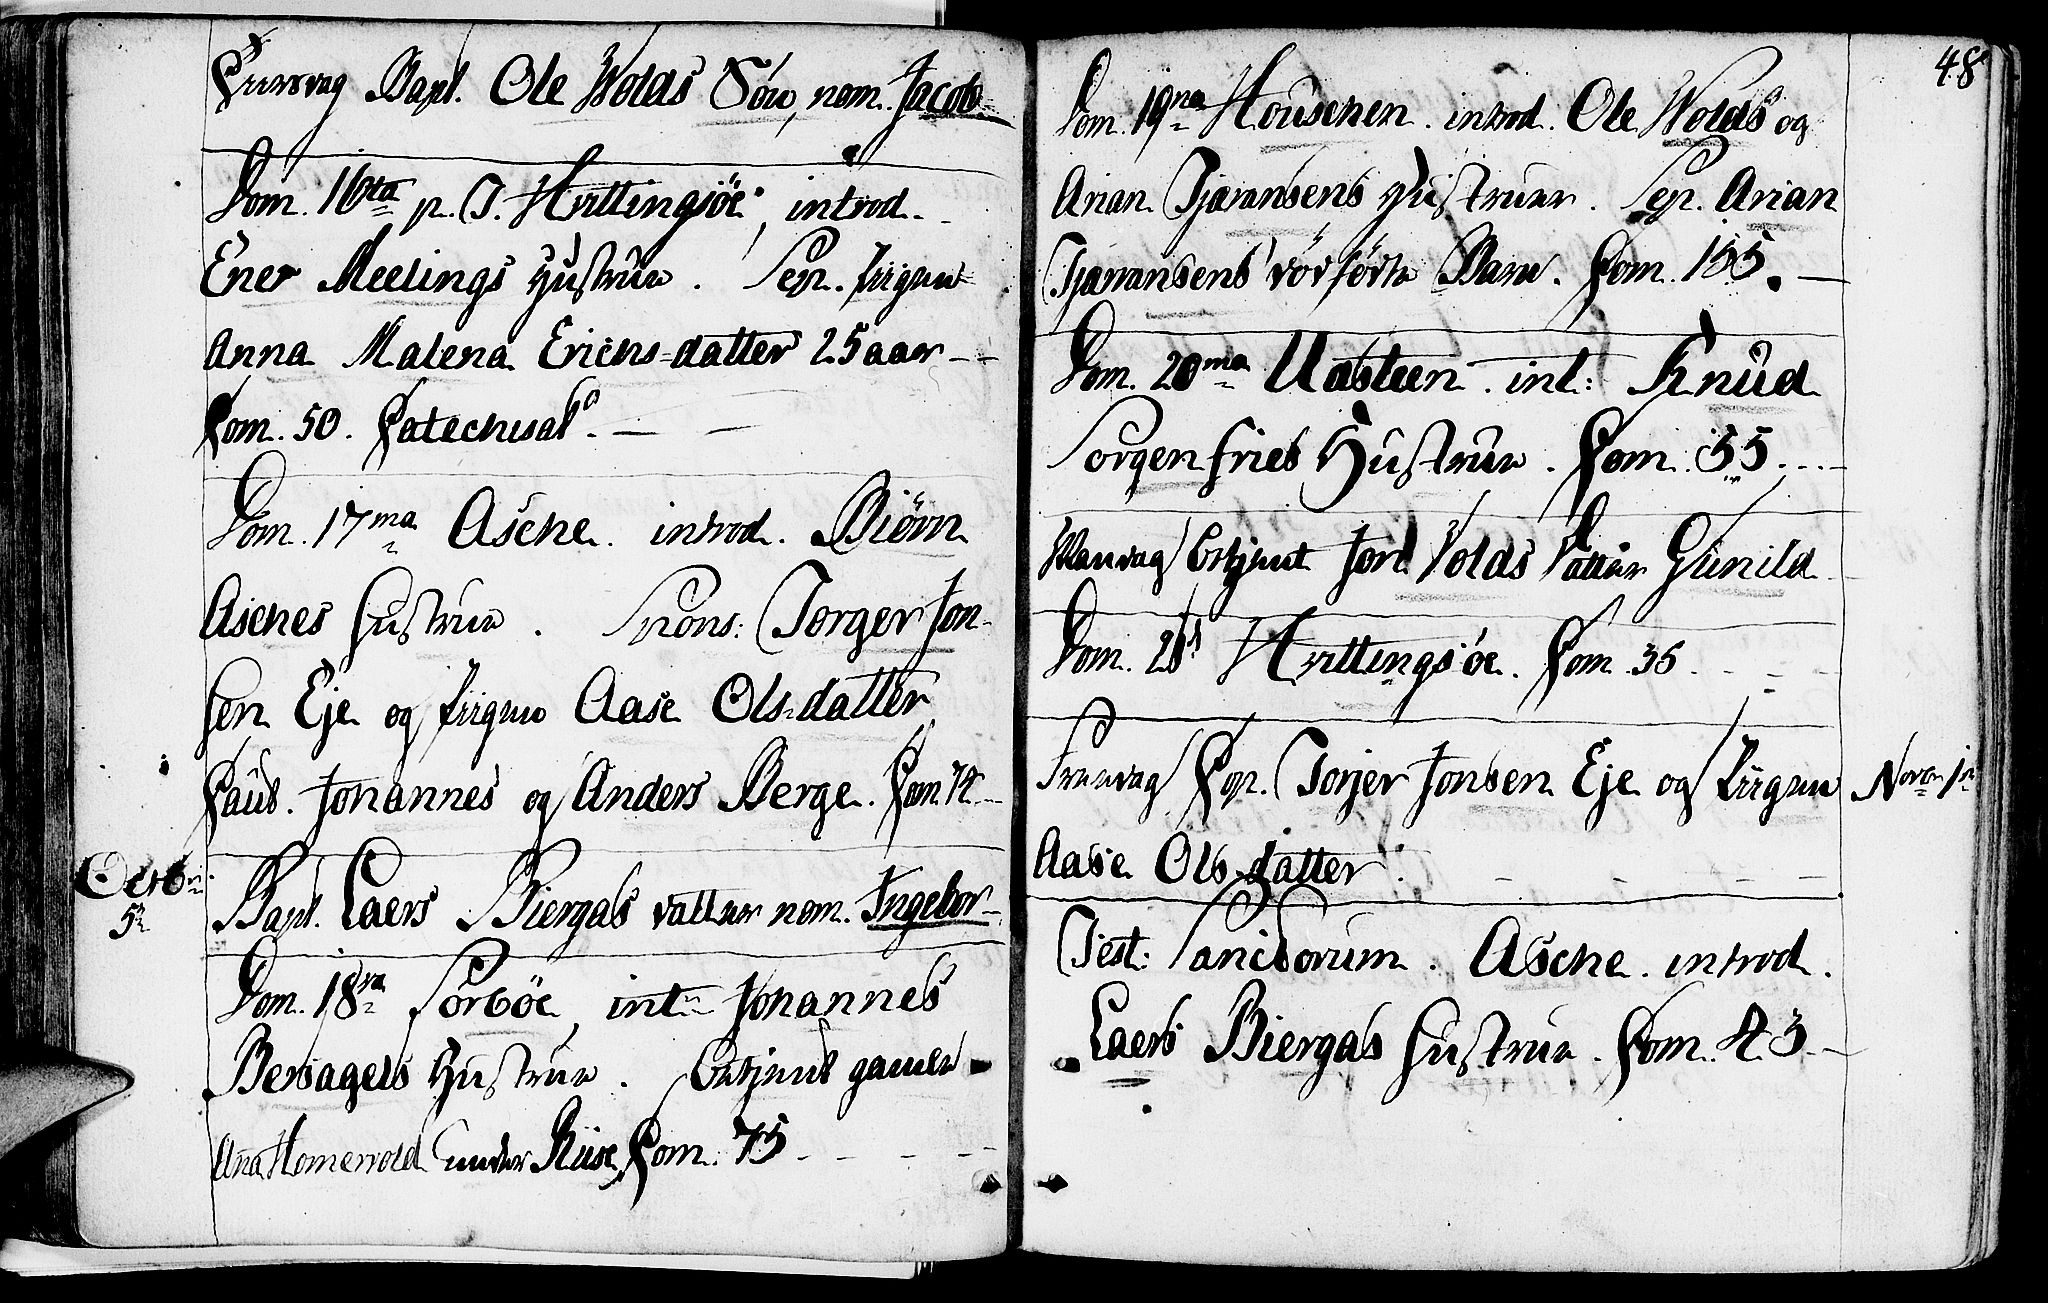 Bapt. Ole Wolds Sön, nom. Jacob.
Dom. 16ta p. T. Hvittingsöe, introd.
Ener Meelings Hustrue. Sep. Piigen
Anna Malena Erichs-datter 25 aar
Com. 50. Catechisat.
Dom. 17ma Asche. introd. Biörn
Asches Hustrue. Spons: Torger Jon-
sen Eje og Piigen Aase Ols-datter
Caut. Johannes og Anders Berge. Com.
Octbr. 5te
Bapt. Laers Biergas datter nom. Ingebor
Dom. 18va Sörböe, int. Johannes
Bersagels Hustrue. gamle
Ana under Com. 75
48
Dom. 19na Houschen. introd. Ole Wolds og
Arian Tjæransens Hustruer. Sep. Arian
Tjæransens dödfödte Barn. Com. 155.
Dom. 20ma Uasteen. int: Knud
Sorgenfries Hustrue. Com. 55.
Jord Volds datter Gunild
Dom. 21 Hvittingsöe. Com. 35
Cop. Torjer Jonsen Eje og Piigen
Novbr. 1
Aase Ols-datter.
Fest: Sanctorum. Asche. introd.
Laers Biergas Hustrue. Com. 43